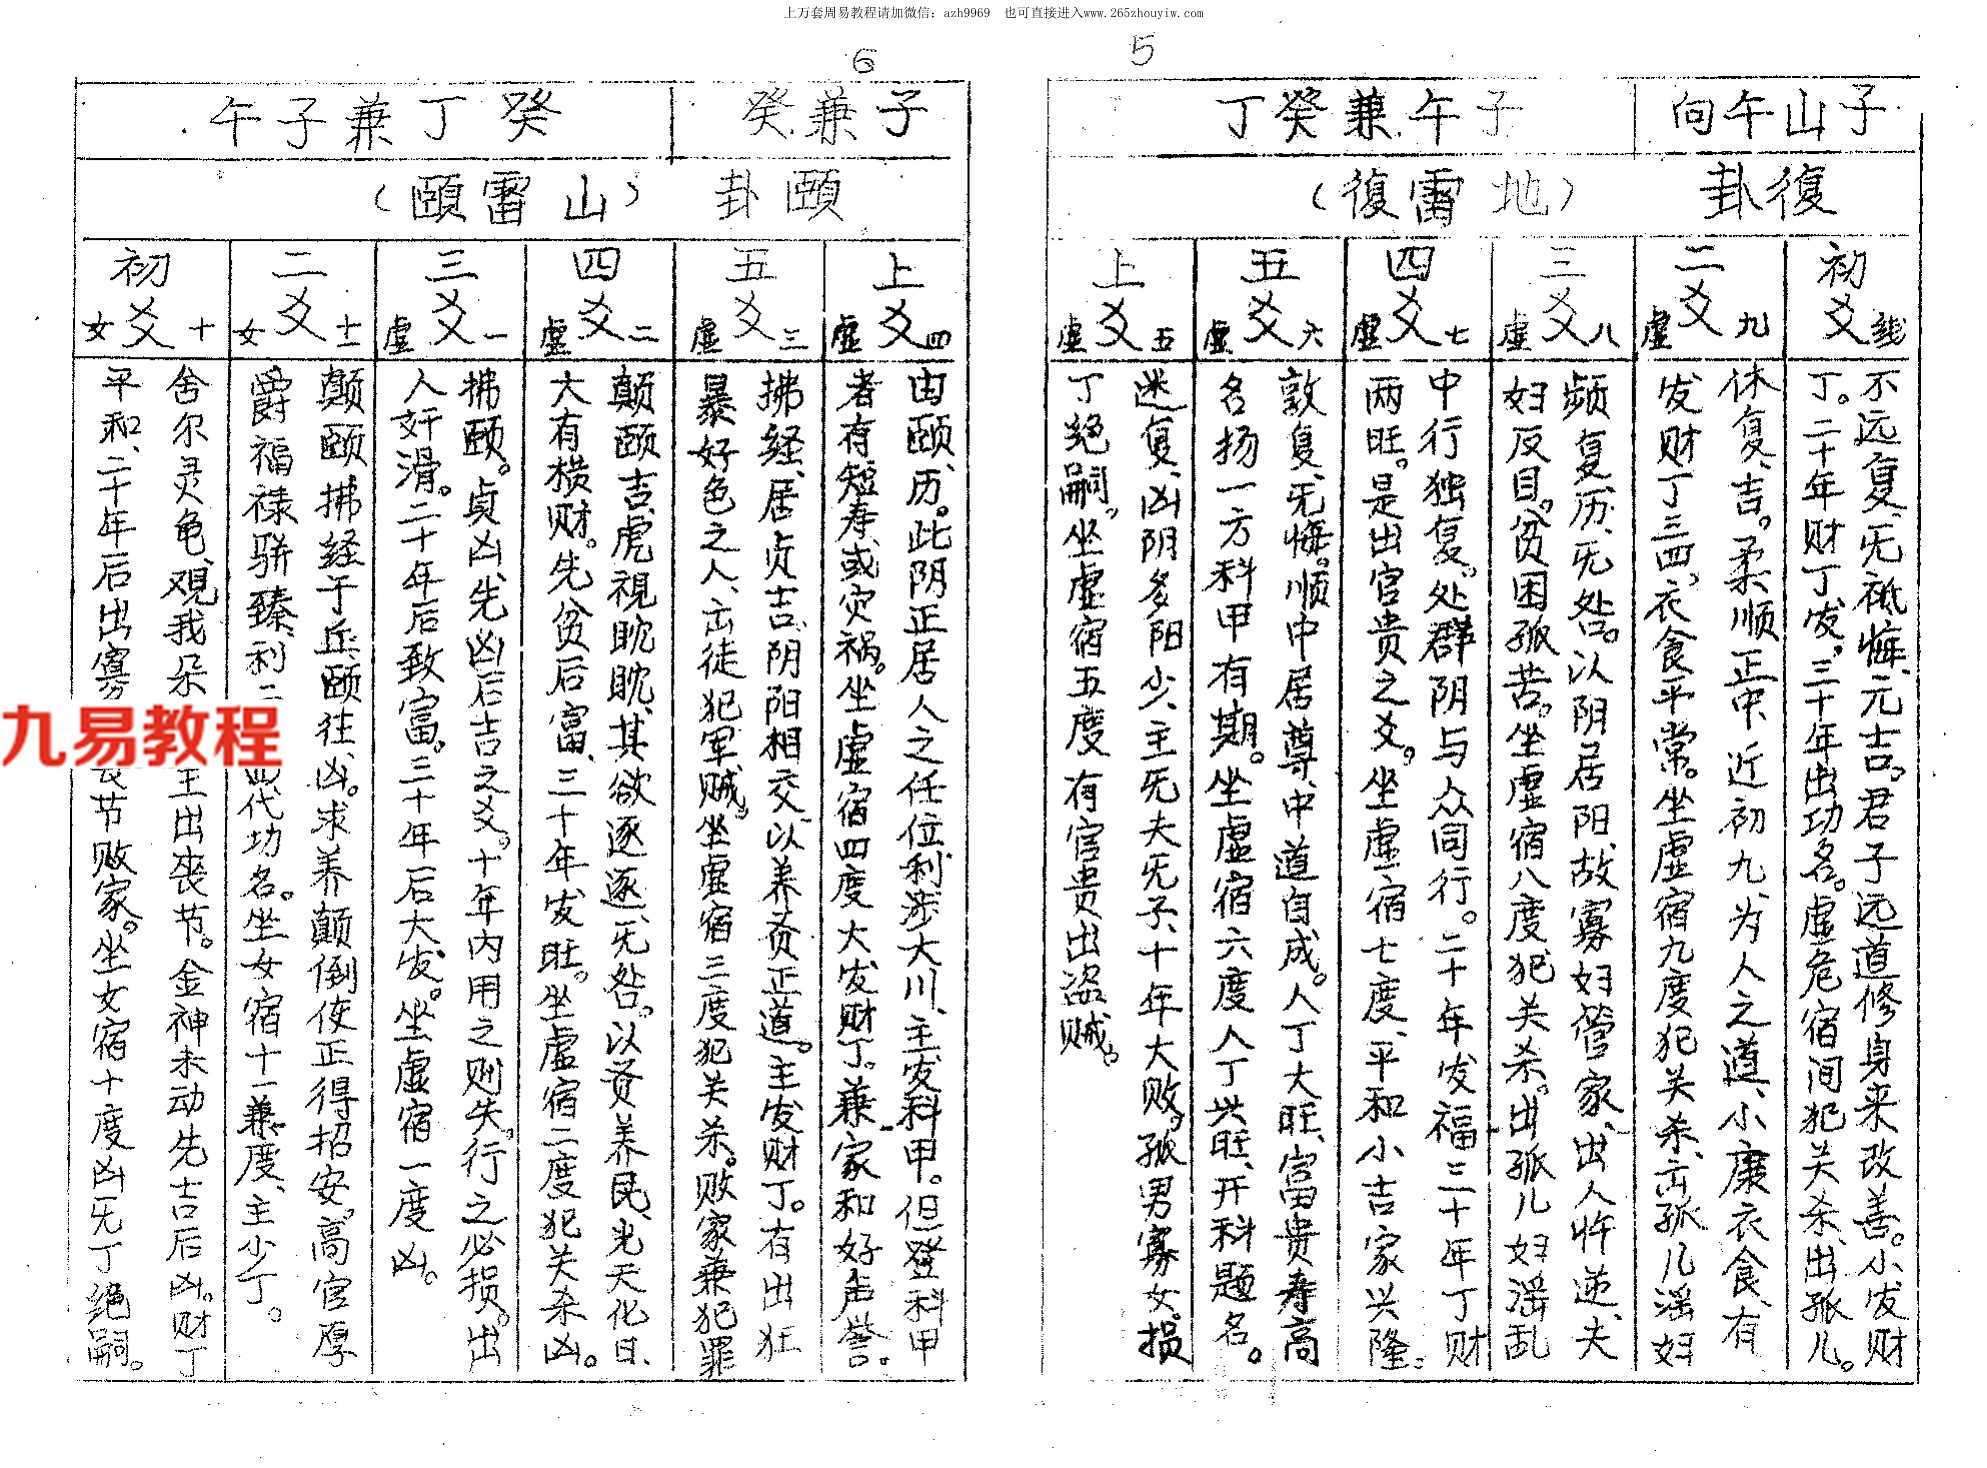 上万套周易教程请加微信：azh9969　也可直接进入www.265zhouyiw.com
5
子山午向
子午兼癸丁
復卦
（地雷復）
初爻 线
不远复、无祗悔、元吉。君子远道修身来改善。小发财
丁。二十年财丁发。三十年出功名。虚危宿间犯关杀、出孤儿。
二爻 虚九
休复、吉。柔顺正中、近初九、为人之道、小康衣食、有
发财丁三四、衣食平常。坐虚宿九度犯关杀、出孤儿淫妇
三爻 虚八
频复历、无咎。以阴居阳、故寡妇管家、出人忤逆、夫
妇反目。贫困孤苦。坐虚宿八度犯关杀。出孤儿妇淫乱
四爻 虚七
中行独复。处群阴与众同行。二十年发福三十年丁财
两旺。是出官贵之爻。坐虚宿七度、平和小吉家兴隆。
五爻 虚六
敦复、无悔。顺中居尊、中道自成。人丁大旺、富贵寿高
名扬一方科甲有期。坐虚宿六度人丁兴旺、开科题名。
上爻 虚五
迷复、凶阴多阳少、主无夫无子、十年大败。孤男寡女。损
丁绝嗣。坐虚宿五度有官贵出盗贼。
6
子兼癸
癸丁兼子午
頤卦
（山雷頤）
上爻 虚四
由颐、历。此阴正居人之任位、利涉大川、主发科甲。但登科甲
者有短寿、或灾祸。坐虚宿四度大发财丁。兼家和好声誉。
五爻 虚三
拂经、居贞吉、阴阳相交、以养贤正道。主发财丁。有出狂
暴好色之人、出徒犯军、贼。坐虚宿三度犯关杀。败家兼犯罪
四爻 虚二
颠颐、吉、虎视眈眈、其欲逐逐、无咎。以贤养民、光天化日、
大有横财。先贫后富、三十年发旺。坐虚宿二度犯关杀凶。
三爻 虚一
拂颐。贞凶、先凶后吉之爻。十年内用之则失。行之必损。出
人奸滑。二十年后致富。三十年后大发。坐虚宿一度凶。
二爻 女十一
颠颐拂经于丘、颐往、凶。求养颠倒使正得招安。高官厚
爵福禄骈臻、利二 代功名。坐女宿十一兼度、主少丁。
初爻 女十
舍尔灵龟、观我朵 主出丧节。金神未动先吉后凶。财丁
平和、二十年后出寡 丧节败家。坐女宿十度凶无丁绝嗣。
九易教程